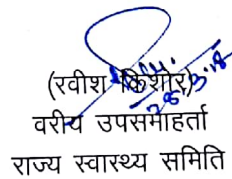 (रवीश किशोर)
वरीय उपसमाहर्ता
राज्य स्वास्थ्य समिति